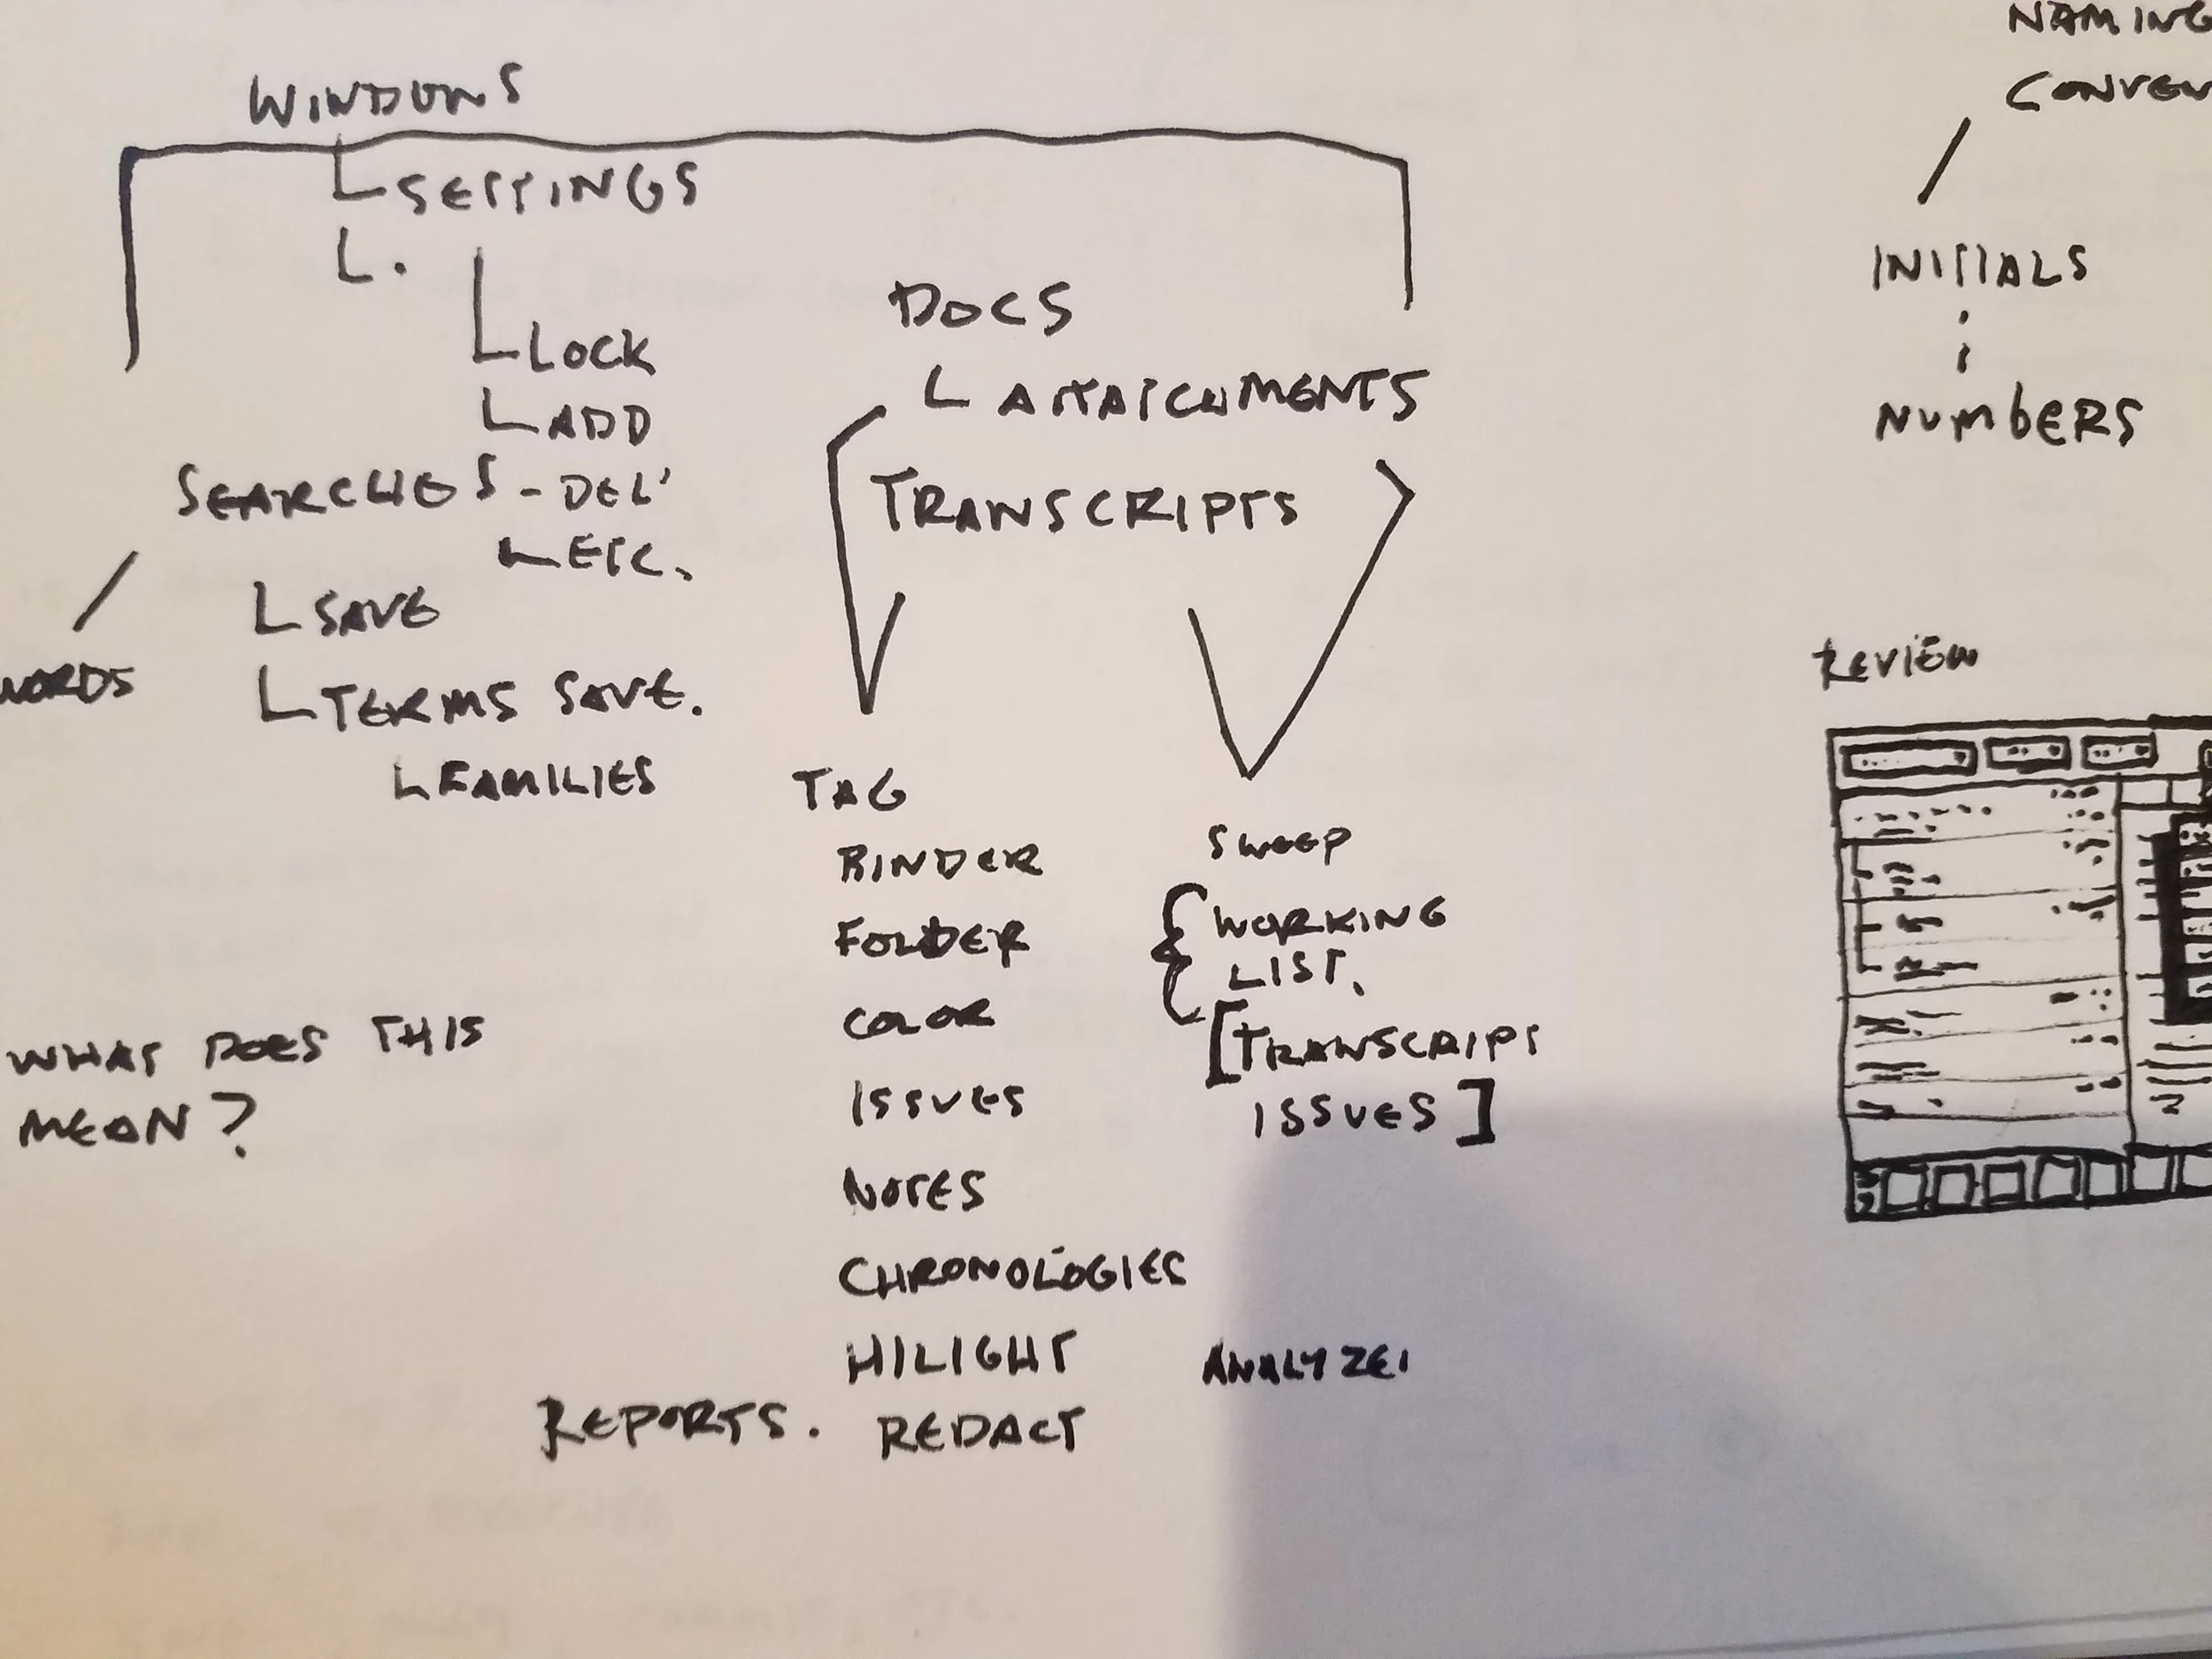 NAMING
CONVEN
WINDOWS
SETTINGS
L.
LOCK
ADD
SEARCHES - DEL'
ETC.
SAVE
WORDS
TERMS SAVE.
FAMILIES
DOCS
ATTATCHMENTS
TRANSCRIPTS
INITIALS
NUMBERS
REVIEW
TAG
BINDER
FOLDER
COLOR
ISSUES
NOTES
CHRONOLOGIES
HILIGHT
REDACT
REPORTS.
SWEEP
{ WORKING
LIST.
[TRANSCRIPT
ISSUES]
ANALYZE.
WHAT DOES THIS
MEAN?